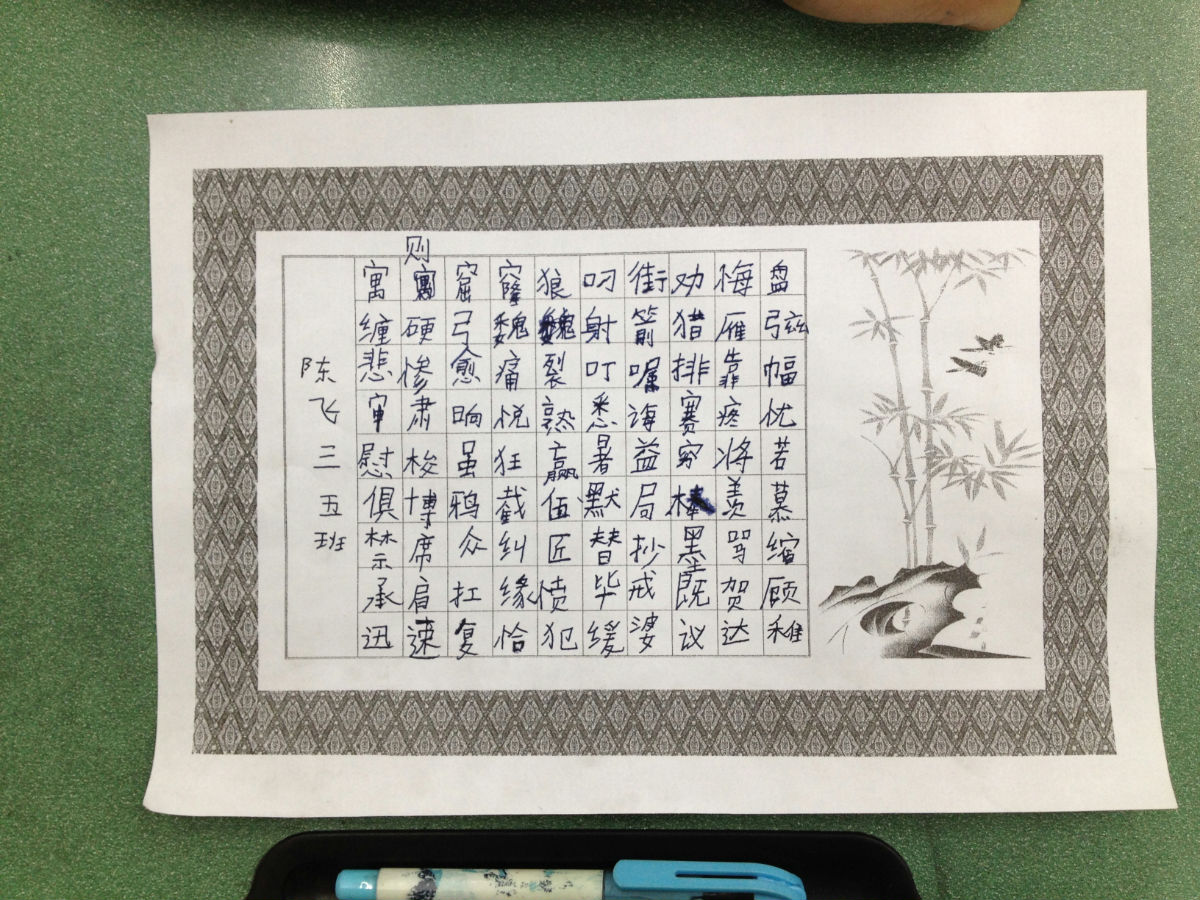 寓则窟窿狼叼街劝悔盘
缠硬弓魏射箭猎雁弦
悲惨愈痛裂叮嘱排靠幅
审肃晌悦熟悉诲赛疼忧
慰梭虽狂赢暑益穷将若
俱博鸦截伍默局棒羡慕
禁席众纠匠替抄墨骂缩
承肩扛缘愤毕戒既贺顾
迅速复恰犯缓婆议达稚
陈飞三五班